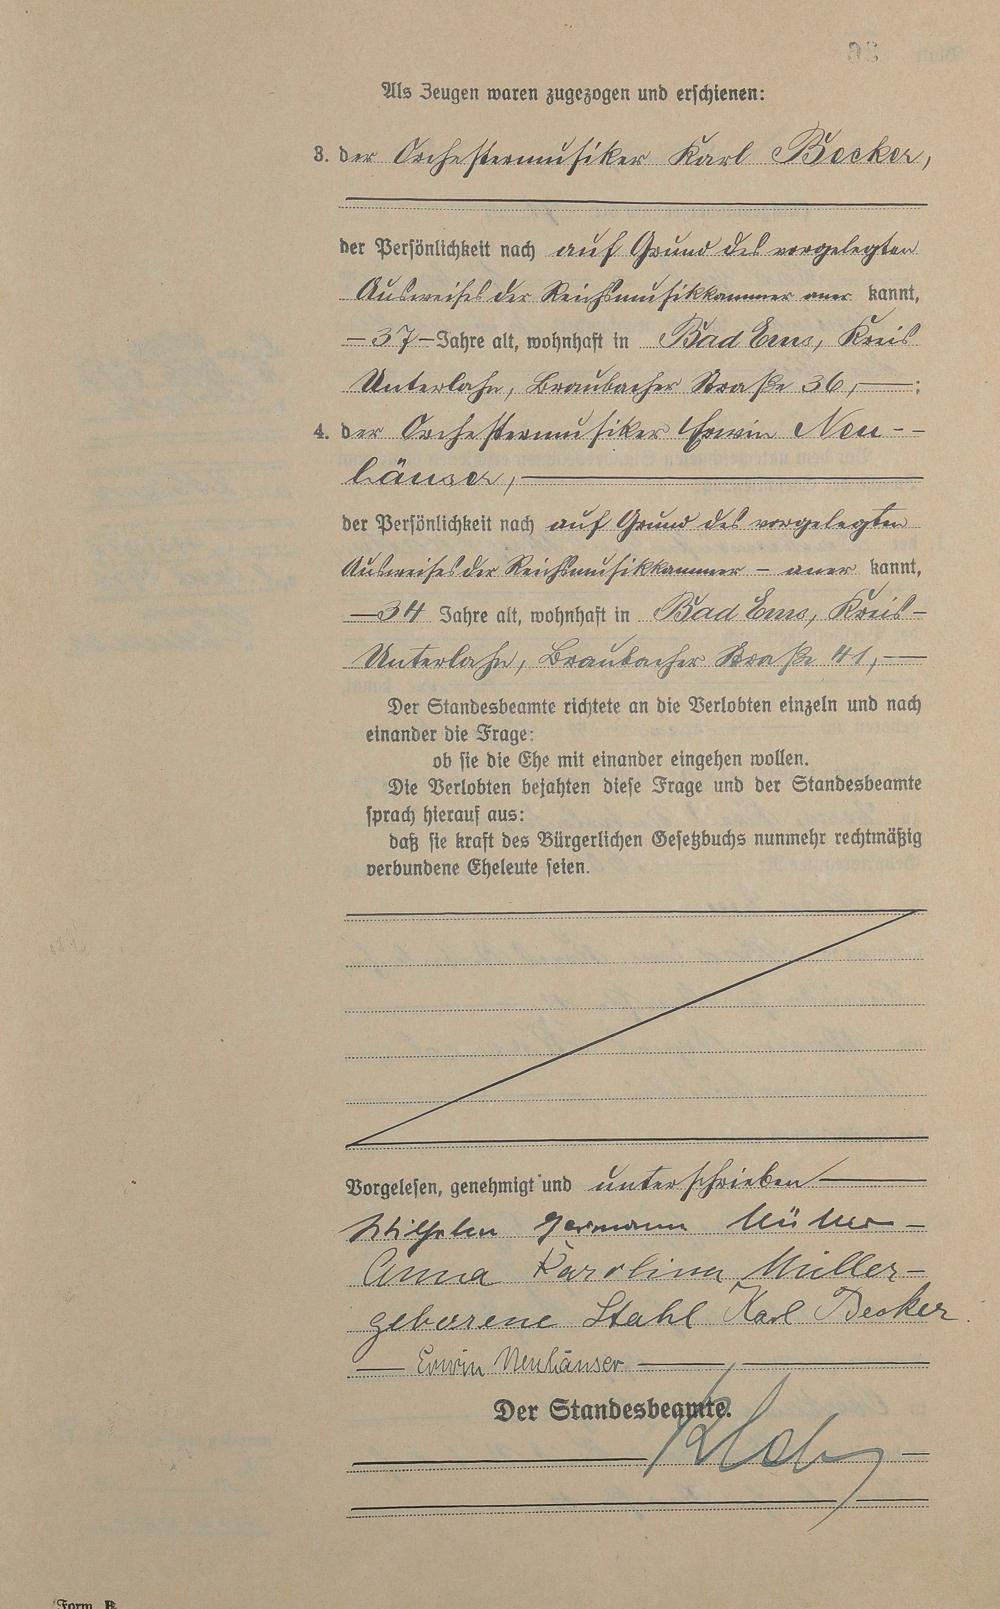 Als Zeugen waren zugezogen und erschienen:
3. der Orchestermusiker Karl Becker,
der Persönlichkeit nach auf Grund des vorgelegten
Ausweises der Reichsmusikkammer aner kannt,
—37— Jahre alt, wohnhaft in Bad Ems, Kreis
Unterlahn, Braubacher Straße 36,—;
4. der Orchestermusiker Erwin Neu--
häuser,—
der Persönlichkeit nach auf Grund des vorgelegten
Ausweises der Reichsmusikkammer – aner kannt,
—34 Jahre alt, wohnhaft in Bad Ems, Kreis—
Unterlahn, Braubacher Straße 41,—
Der Standesbeamte richtete an die Verlobten einzeln und nach
einander die Frage:
ob sie die Ehe mit einander eingehen wollen.
Die Verlobten bejahten diese Frage und der Standesbeamte
sprach hierauf aus:
daß sie kraft des Bürgerlichen Gesetzbuchs nunmehr rechtmäßig
verbundene Eheleute seien.
Vorgelesen, genehmigt und unterschrieben—
Wilhelm Hermann Müller—
Anna Karolina Müller—
geborene Stahl Karl Becker
— Erwin Neuhäuser —
Der Standesbeamte.
Form. B.